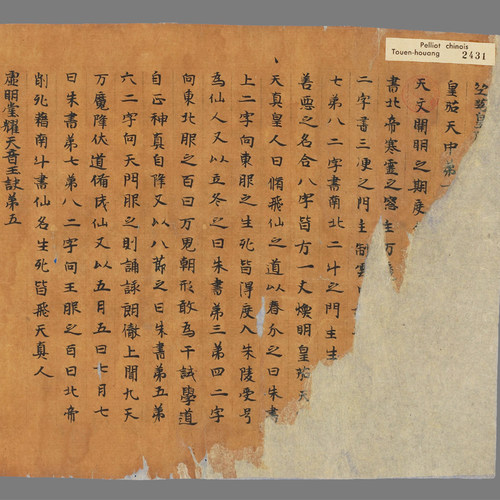 Pelliot chinois
Touen-houang 2431
皇玹天中第
天文開明之期度
書北帝寒靈之窓生万
二字書三便之門主制雲
七第八二字書南北二斗之門主生
善惡之名合八字皆方一丈煥明皇玹天
天真皇人曰脩飛仙之道以春分之日朱書
上二字向東服之生死皆得度入朱陵受号
為仙人又以立冬之日朱書第三第四二字
向東北服之百日万鬼朝形敢為干試學道
自正神真自降又以八節之日朱書第五第
六二字向天門服之則誦詠朗徹上聞九天
万魔降伏道備成仙又以五月五日七月七
日朱書第七第八二字向王服之百日北帝
削死籍南斗書仙名生死皆飛天真人
虛明堂耀天音玉訣第五